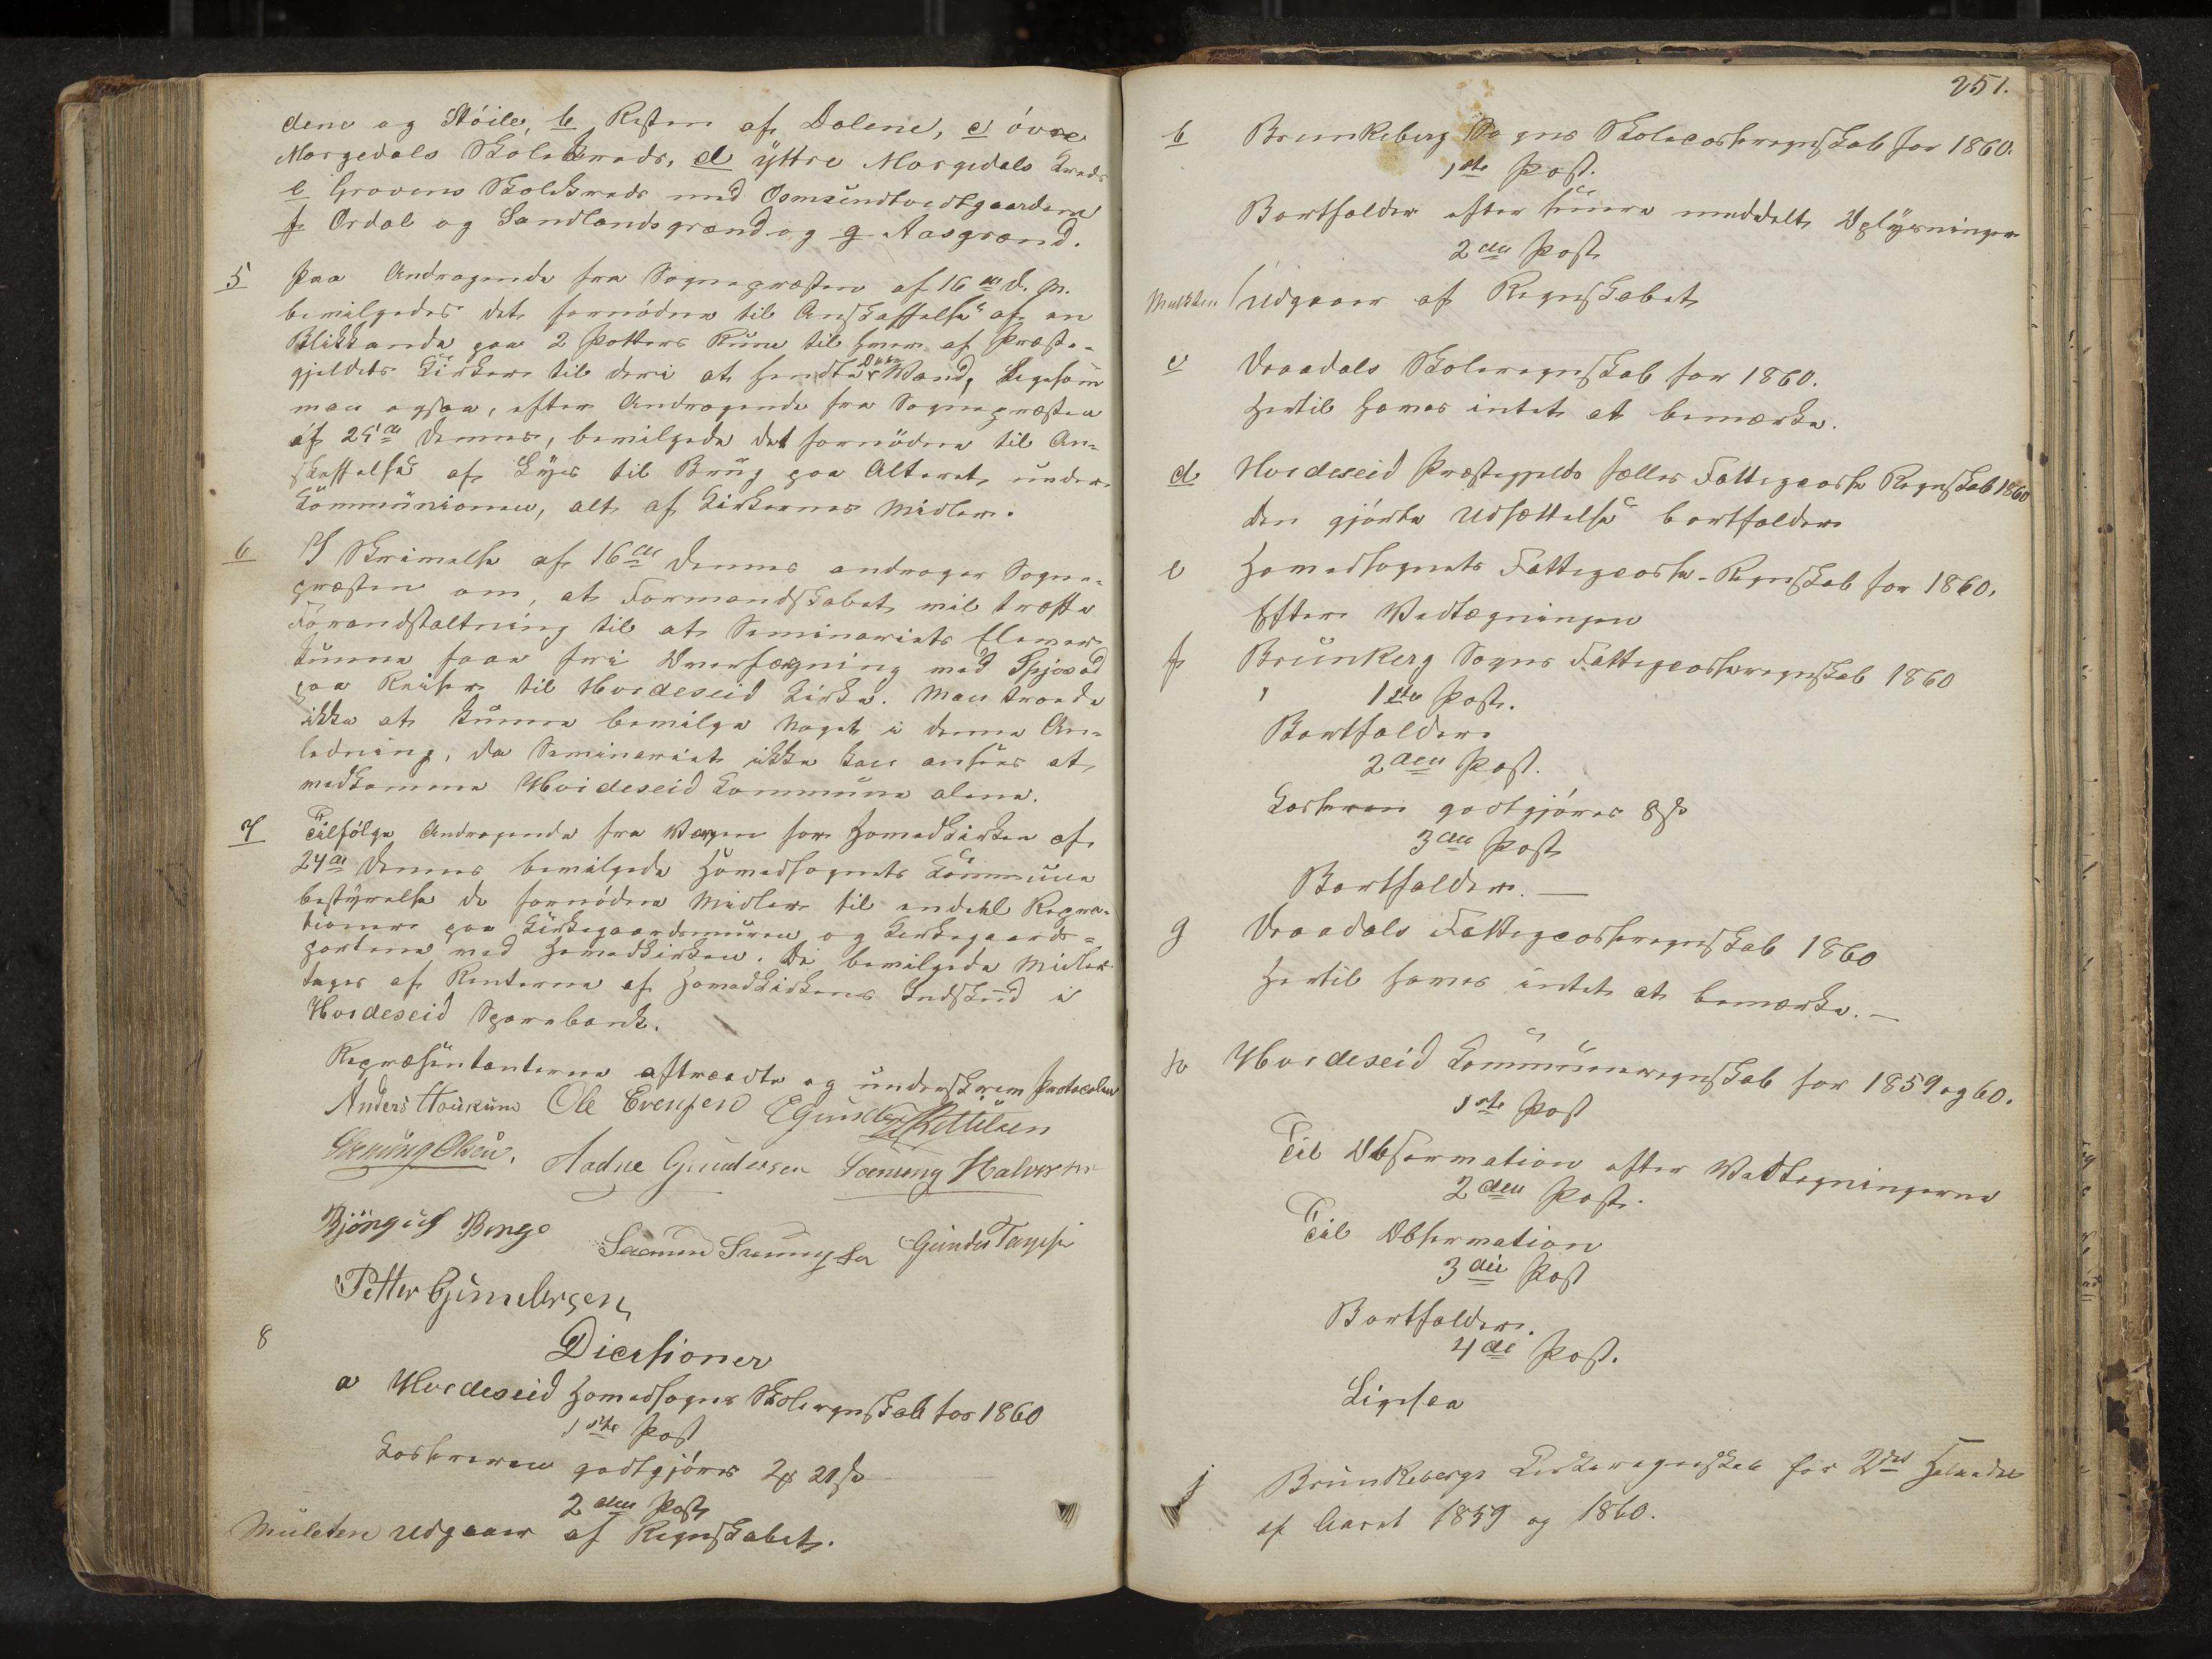 dene og Stöile, b Resten af Dalene, c övre
Morgedals Skolekreds, d ÿttre Morgedals Kreds
e Grovens Skolekreds med Osmundtvedtgaardene
f Ordal og Sandlandsgrænd og g Aasgrænd.
5 Paa Andragende fra Sognepræsten af 16de d. M.
bevilgedes det fornödne til Anskaffelse af en
Blikkande paa 2 Potters Rum til hver af Præste-
gjeldets Kirker til deri at hendte Daabs Vand, ligesom
man ogsaa, efter Andragende fra Sognepræsten
af 25de dennes, bevilgede det fornödne til An-
skaffelse af Lÿs til Brug paa Alteret under
Communionen, alt af Kirkernes Midler.
6 I Skrivelse af 16de dennes andrager Sogne-
præsten om, at Formandskabet vil træffe
Foranstaltning til at Seminariets Elever
kunne faae fri Overfærgning med Skyds
paa Reiser til Hvideseid Kirke. Man troede
ikke at kunne bevilge Noget i denne An-
ledning, da Seminariet ikke kan ansees at
vedkomme Hvideseid Commune alene.
7 Tilfölge Andragende fra Værgen for Hovedkirken af
24de dennes bevilgede Hovedsognets Commune
bestÿrelse de fornödne Midler til endel Repara-
tioner paa Kirkegaardsmuren og Kirkegaards-
portene ved Hovedkirken. De bevilgede Midler
tages af Renterne af Hovedkirkens Indskud i
Hvideseid Sparebank.
Repræsentanterne aftraadte og underskrev Protocolen
Anders Haukum Ole Evensen EGunder Kittilsen
Sveinung Olsen. Aadne Gundersen Sveinung Halvorsen
Björgulf Berge Saamund Sveinungsen Gunder
Petter Gundersen
8 Dicisioner
a Hvideseid Hovedsogns Skoleregnskab for 1860
1ste Post
Kassereren godtgjöres 2 21 s
2den Post
Mulcten udgaaer af Regnskabet.
251.
b Brunkeberg Sogns Skolecasseregnskab for 1860.
1ste Post.
Bortfalder efter senere meddelte Oplÿsninger
2den Post
Mulkten udgaaer af Regnskabet
c Vraadals Skoleregnskab for 1860.
Hertil haves intet at bemærke.
d Hvideseid Præstegjelds fælles Fattigcasse Regnskab 1860
den gjorte Udsættelse bortfalder
e Hovedsognets Fattigcasse-Regnskab for 1860.
Efter Vedtegningen
f Brunkerg Sogns Fattigcasseregnskab 1860
1ste Post.
Bortfalder
2den Post.
Kasseren godtgjöres 8 s
3die Post
Bortfalder. —
g Vraadals Fattigcasseregnskab 1860
Hertil haves intet at bemærke. —
h Hvideseid Communeregnskab for 1859 og 60.
1ste Post
Til Observation efter Vedtegningerne
2den Post.
Til Observation
3die Post
Bortfalder.
4de Post.
Ligesaa
j Brunkebergs Kirkeregnskab for 2det Halvdel
af Aaret 1859 og 1860.